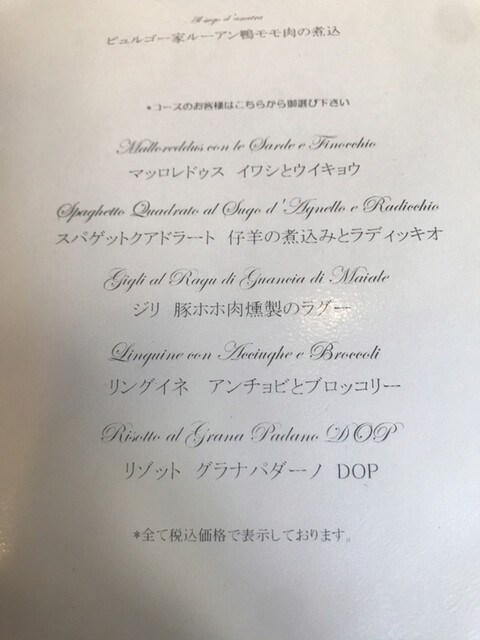 Il sugo d'anatra
ビュルゴー家ルーアン鴨モモ肉の煮込
*コースのお客様はこちらから御選び下さい
Malloreddus con le Sarde e Finocchio
マッロレドゥス イワシとウイキョウ
Spaghetto Quadrato al Sugo d'Agnello e Radicchio
スパゲットクアドラート 仔羊の煮込みとラディッキオ
Gigli al Ragu di Guancia di Maiale
ジリ 豚ホホ肉燻製のラグー
Linguine con Acciughe e Broccoli
リングイネ アンチョビとブロッコリー
Risotto al Grana Padano DOP
リゾット グラナパダーノ DOP
*全て税込価格で表示しております。